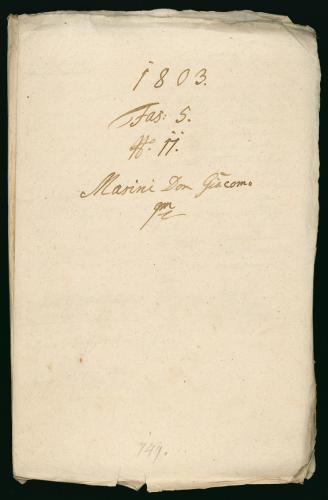 1803.
Fas: 5.
N.º 11.
Marini Don Giacom.º
qm
749.